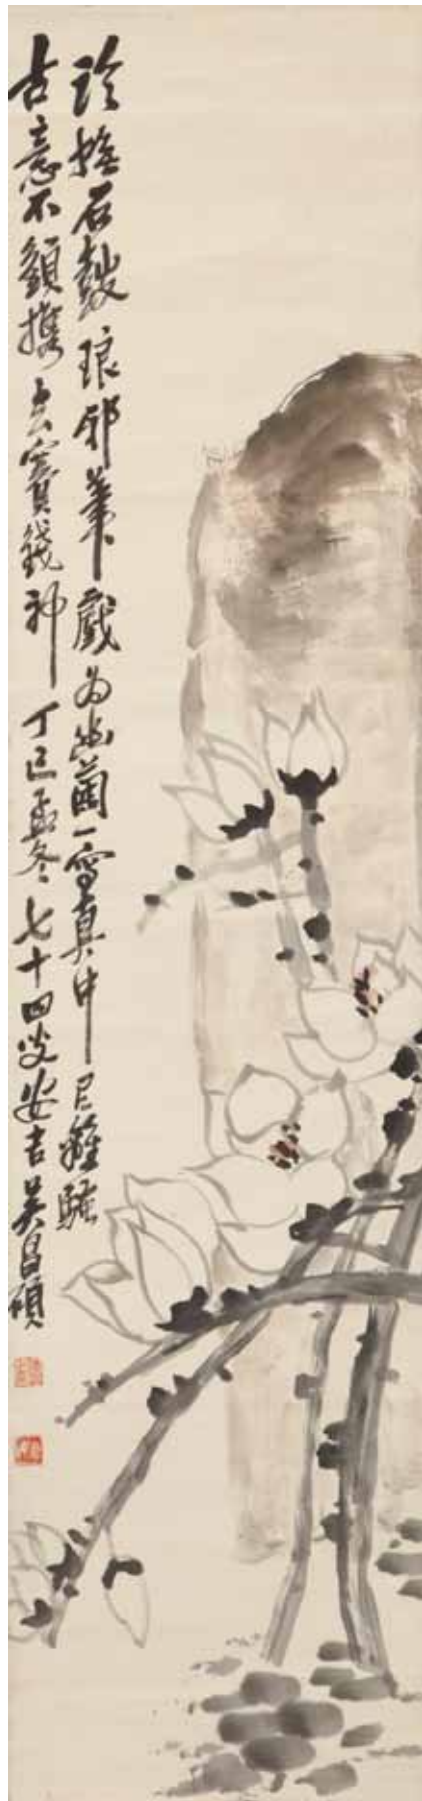 臨撫石鼓琅邪筆戲為幽蘭一寫真中有離騷
古意不須攜去賽錢神丁巳孟冬七十四叟安吉吳昌碩